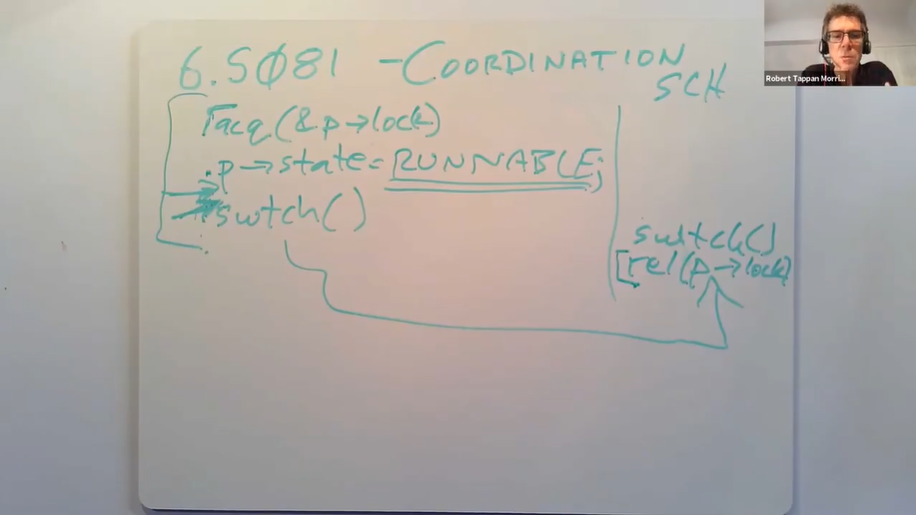 6.SØ81 - COORDINATION
SCH
acq(&p→lock)
p→state=RUNNABLE;
swtch()
switch()
[rel(p→lock)
Robert Tappan Morri...